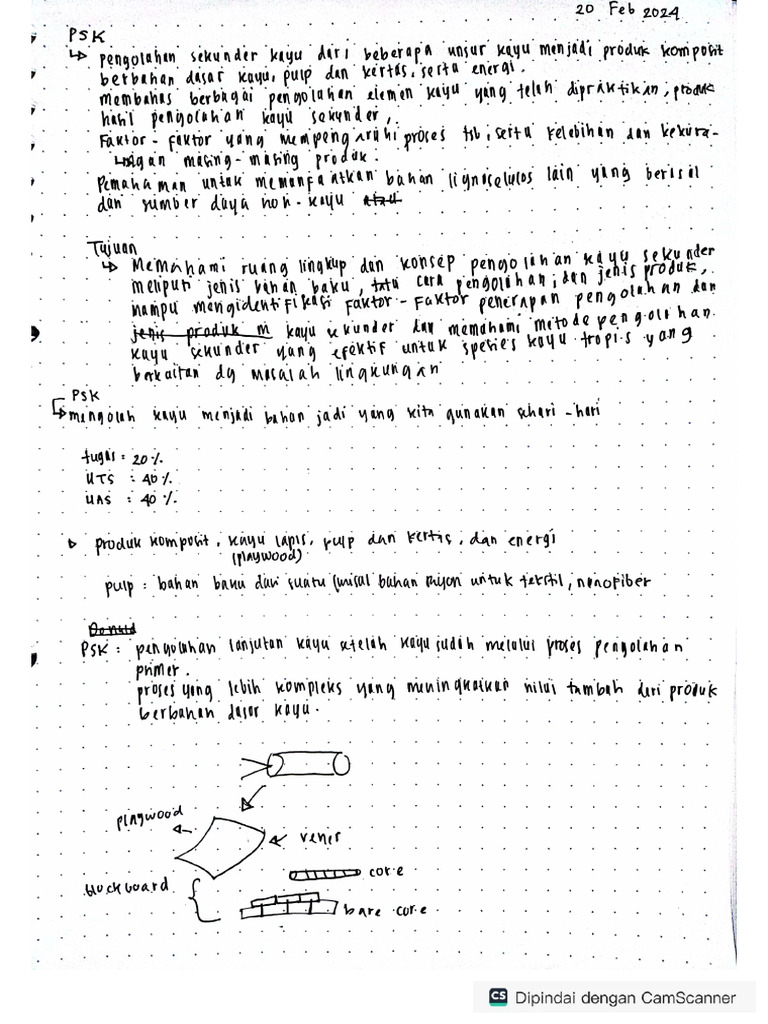 20 Feb 2024
PSK
↳ pengolahan sekunder kayu dari beberapa unsur kayu menjadi produk komposit
berbahan dasar kayu, pulp dan kertas, serta energi.
membahas berbagai pengolahan elemen kayu yang telah dipraktikan, produk
hasil pengolahan kayu sekunder,
Faktor - faktor yang mempengaruhi proses tsb, serta kelebihan dan kekura-
ngan masing-masing produk.
Pemahaman untuk memanfaatkan bahan lignoselulos lain yang berasal
dari sumber daya non-kayu atau
Tujuan
↳ Memahami ruang lingkup dan konsep pengolahan kayu sekunder
meliputi jenis bahan baku, tata cara pengolahan, dan jenis produk,
mampu mengidentifikasi faktor - faktor penerapan pengolahan dan
jenis produk m kayu sekunder dan memahami metode pengolahan
kayu sekunder yang efektif untuk spesies kayu tropis yang
berkaitan dg masalah lingkungan
PSK
↳ mengolah kayu menjadi bahan jadi yang kita gunakan sehari-hari
tugas : 20%.
UTS : 40%.
UAS : 40%.
produk komposit, kayu lapis, pulp dan kertas, dan energi
(playwood)
pulp : bahan baku dari suatu (misal bahan rayon untuk tekstil, nanofiber
PSK : pengolahan lanjutan kayu setelah kayu sudah melalui proses pengolahan
primer.
proses yang lebih kompleks yang meningkatkan nilai tambah dari produk
berbahan dasar kayu.
playwood
venir
core
blockboard
bare core
CS Dipindai dengan CamScanner